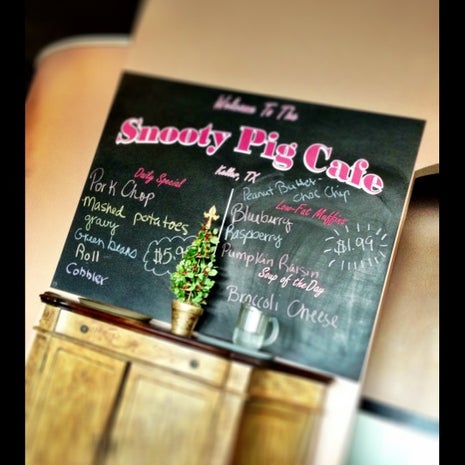 Welcome To The
Snooty Pig Cafe
Keller, TX
Daily Special
Pork Chop
Mashed potatoes
gravy
Green beans
Roll
Cobbler
Peanut Butter
choc Chip
Low-Fat Muffins
Bluerburry
Raspberry
$1.99
Pumpkan Raisin
Soup of the Day
Broccoli Cheese